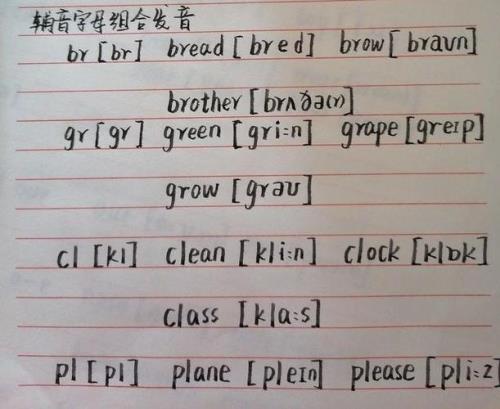 辅音字母组合发音
br [br] bread [bred] brow [braʊn]
brother [brʌðə(r)]
gr [gr] green [gri:n] grape [greɪp]
grow [grəʊ]
cl [kl] clean [kli:n] clock [klɒk]
class [kla:s]
pl [pl] plane [pleɪn] please [pli:z]